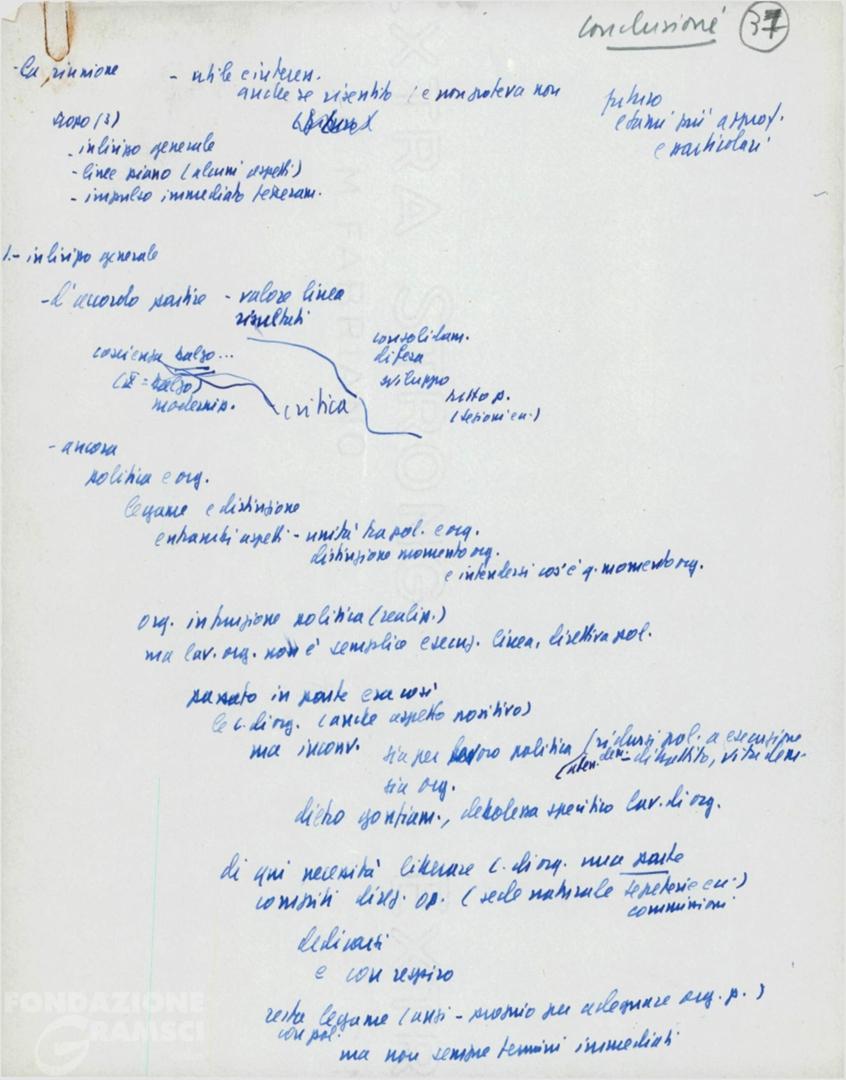 conclusione 37
- La riunione - utile e interess.
anche se risentito (e non poteva non
futuro
esami più appross.
e particolari
scopo (3)
- indirizzo generale
- linee piano (alcuni aspetti)
- impulso immediato tesseram.
1.- indirizzo generale
- d'accordo partire - valore linea
risultati
coscienza balzo...
modernizz.
- critica
consolidam.
difesa
sviluppo
(sezioni ecc.)
- ancora
politica e org.
legame e distinzione
entrambi aspetti - unità tra pol. e org.
distinzione momento org.
e intendersi cos'è q. momento org.
org. in funzione politica (realizz.)
ma lav. org. non è semplice esecuz. linea, direttiva pol.
passato in parte era così
le c. di org. (anche aspetto positivo)
ma inconv. sia per lavoro politica (ridursi pol. a esecuzione
dibattito, vita dem.
sia org.
dietro gonfiam., debolezza specifico lav. di org.
di qui necessità liberare c. di org. una parte
compiti direz. op. (sede naturale segreterie ecc.)
commissioni
dedicarsi
e con respiro
resta legame (anzi - proprio per adeguare org. p.)
con pol.
ma non sempre termini immediati
FONDAZIONE
GRAMSCI